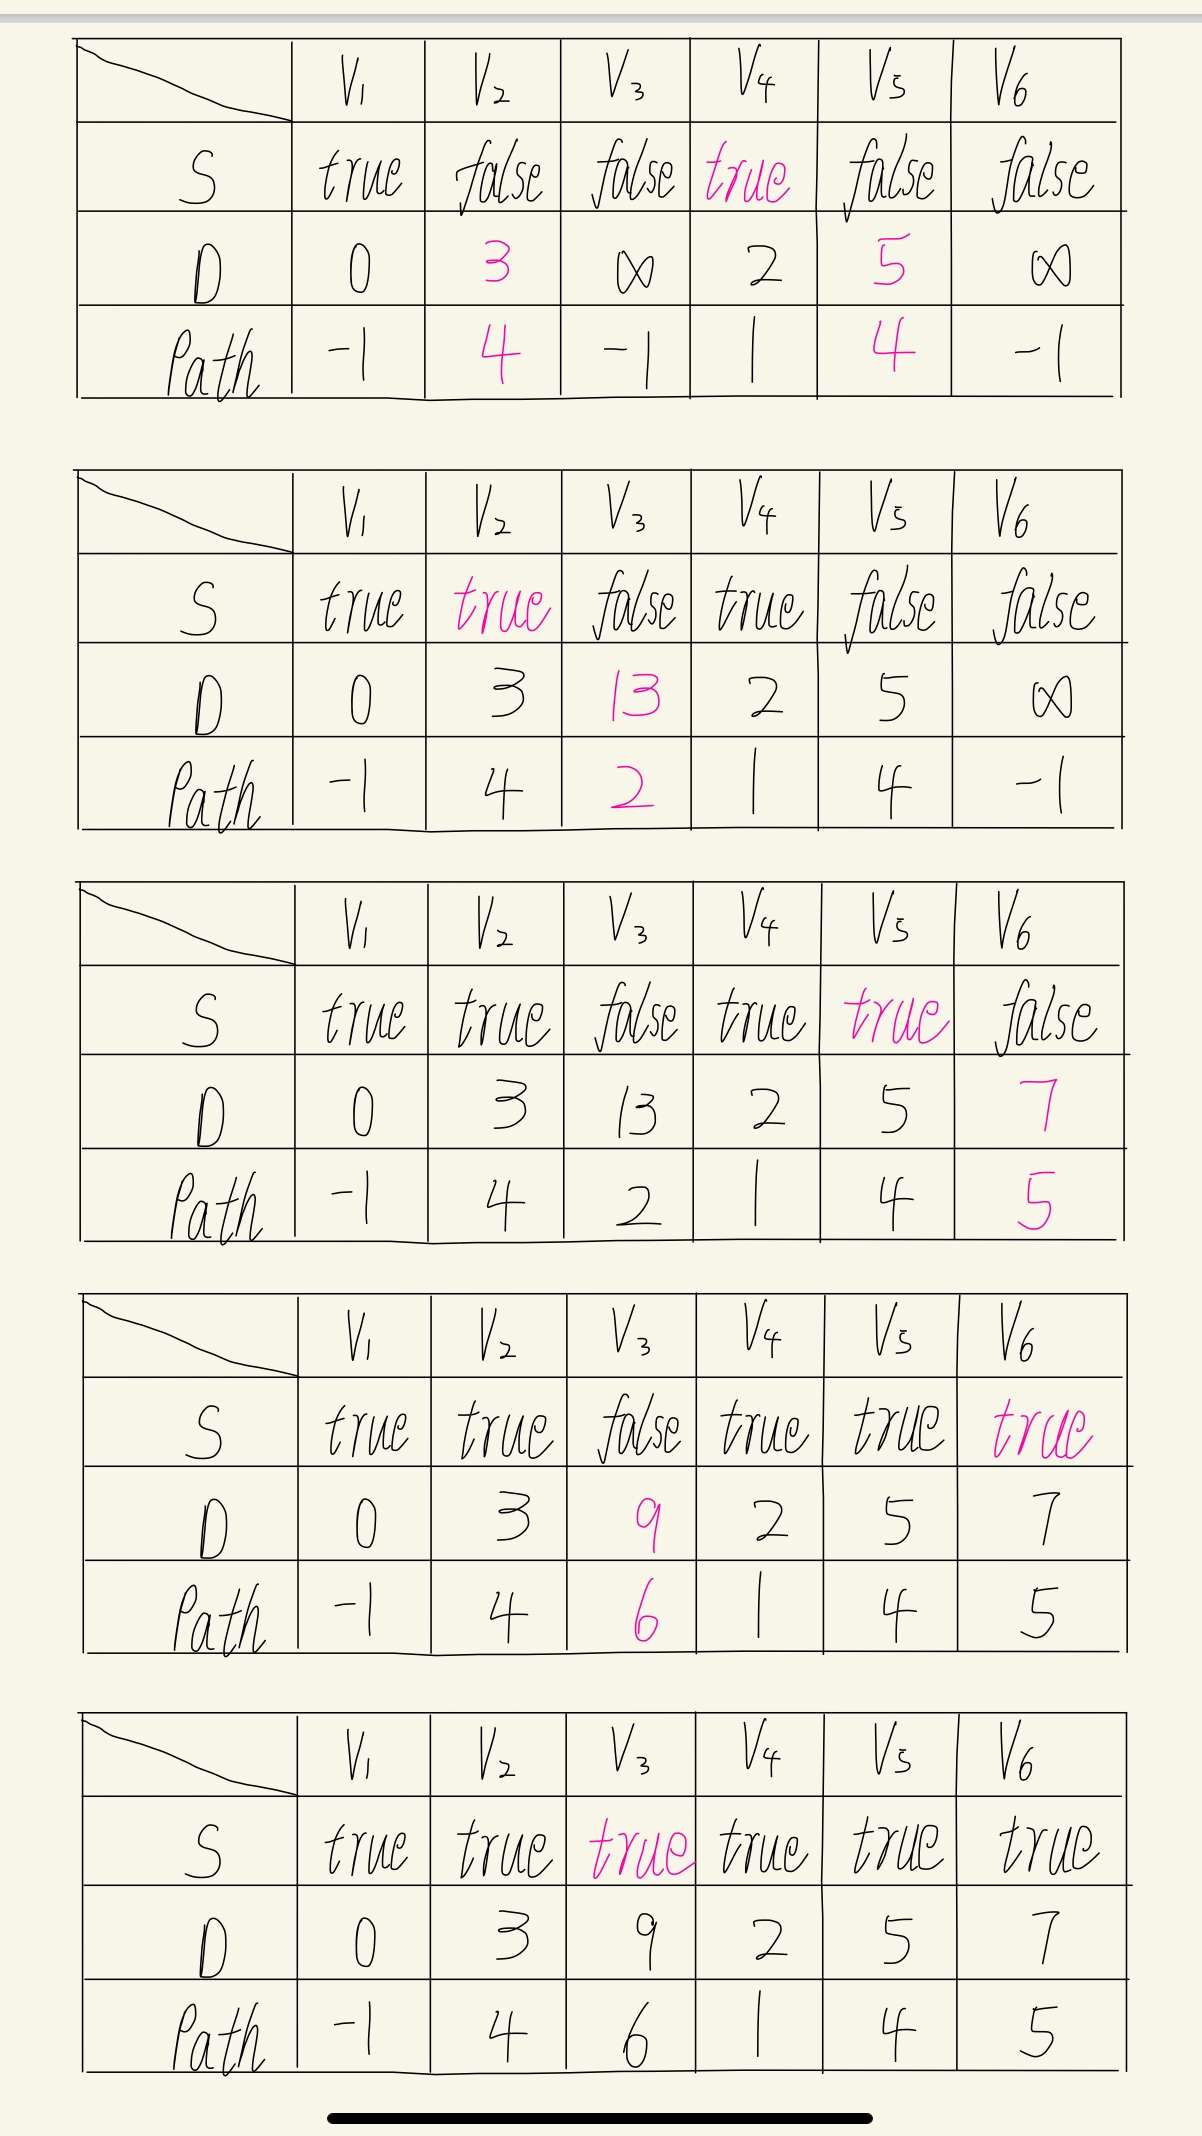 V1 V2 V3 V4 V5 V6
S true false false true false false
D 0 3 ∞ 2 5 ∞
Path -1 4 -1 1 4 -1
V1 V2 V3 V4 V5 V6
S true true false true false false
D 0 3 13 2 5 ∞
Path -1 4 2 1 4 -1
V1 V2 V3 V4 V5 V6
S true true false true true false
D 0 3 13 2 5 7
Path -1 4 2 1 4 5
V1 V2 V3 V4 V5 V6
S true true false true true true
D 0 3 9 2 5 7
Path -1 4 6 1 4 5
V1 V2 V3 V4 V5 V6
S true true true true true true
D 0 3 9 2 5 7
Path -1 4 6 1 4 5